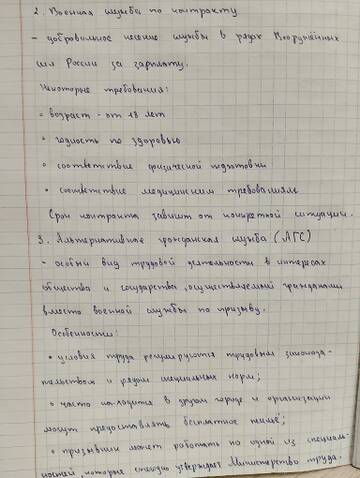 2. Военная служба по контракту
- добровольное несение службы в рядах Вооружённых
сил России за зарплату.
Некоторые требования:
• возраст - от 18 лет
• годность по здоровью
• соответствие физической подготовки
• соответствие медицинским требованиям
Срок контракта зависит от конкретной ситуации.
3. Альтернативная гражданская служба (АГС)
- особый вид трудовой деятельности в интересах
общества и государства, осуществляемой гражданами
вместо военной службы по призыву.
Особенности:
• условия труда регулируются трудовым законода-
тельством и рядом специальных норм;
• часто находится в другом городе и организации
могут предоставлять бесплатное жильё;
• призывник может работать по одной из специаль-
ностей, которые ежегодно утверждает Министерство труда.